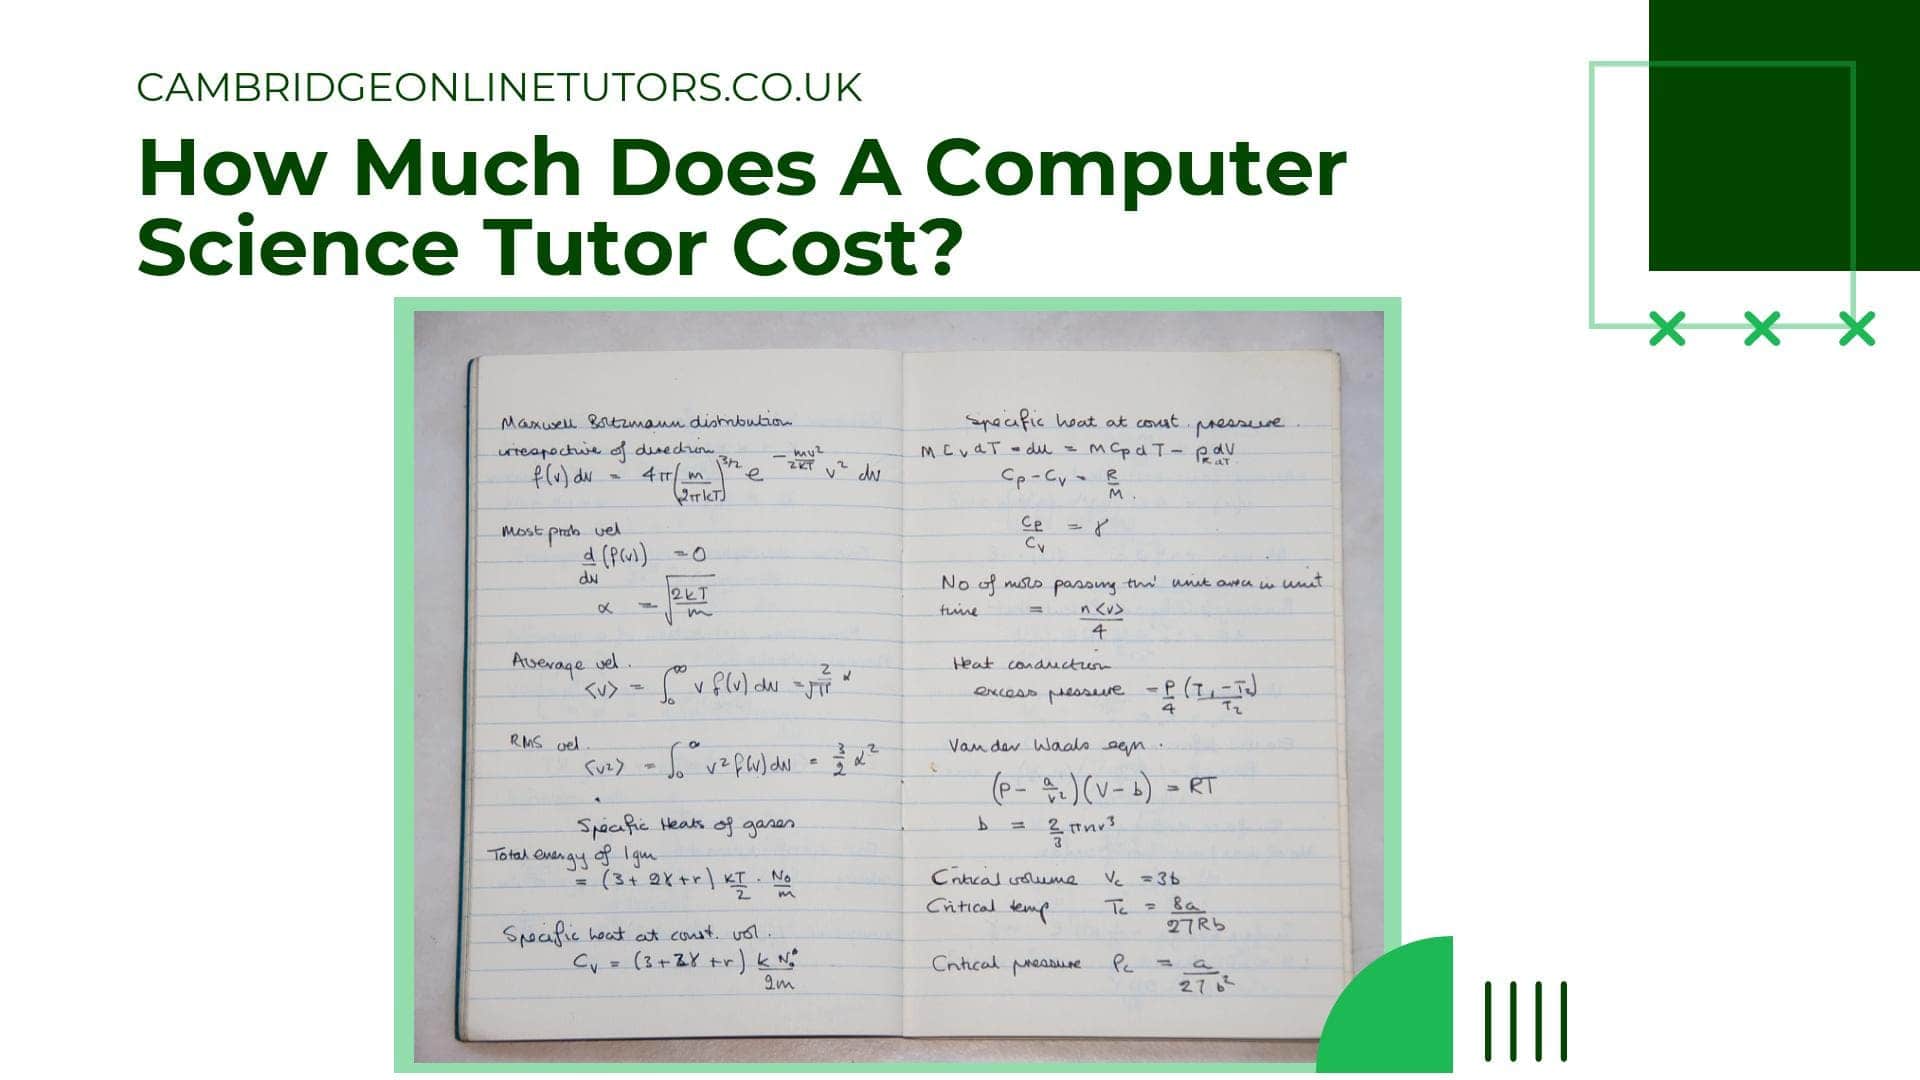 CAMBRIDGEONLINETUTORS.CO.UK
How Much Does A Computer
Science Tutor Cost?
Maxwell Boltzmann distribution
irrespective of direction
f(v) dv = 4π(m/2πkT)^3/2 e^-mv²/2kT v² dv
Most prob vel
d/dv (f(v)) = 0
α = √2kT/m
Average vel.
<v> = ∫₀^∞ v f(v) dv = 2/√π α
RMS vel.
<v²> = ∫₀^∞ v² f(v) dv = 3/2 α²
Specific Heats of gases
Total energy of 1gm
= (3 + 2γ + r) kT/2 . No/m
Specific heat at const. vol.
Cv = (3 + 2γ + r) k No/2m
Specific heat at const. pressure.
M Cv dT = du = M Cp dT - P dV
Cp - Cv = R/M.
Cp/Cv = γ
No of mols passing thro' unit area in unit
time = n<v>/4
Heat conduction
excess pressure = P/4 (T₁ - T₂)/T₂
Van der Waals eqn.
(P - a/v²)(V - b) = RT
b = 2/3 πnr³
Critical volume Vc = 3b
Critical temp Tc = 8a/27Rb
Critical pressure Pc = a/27b²